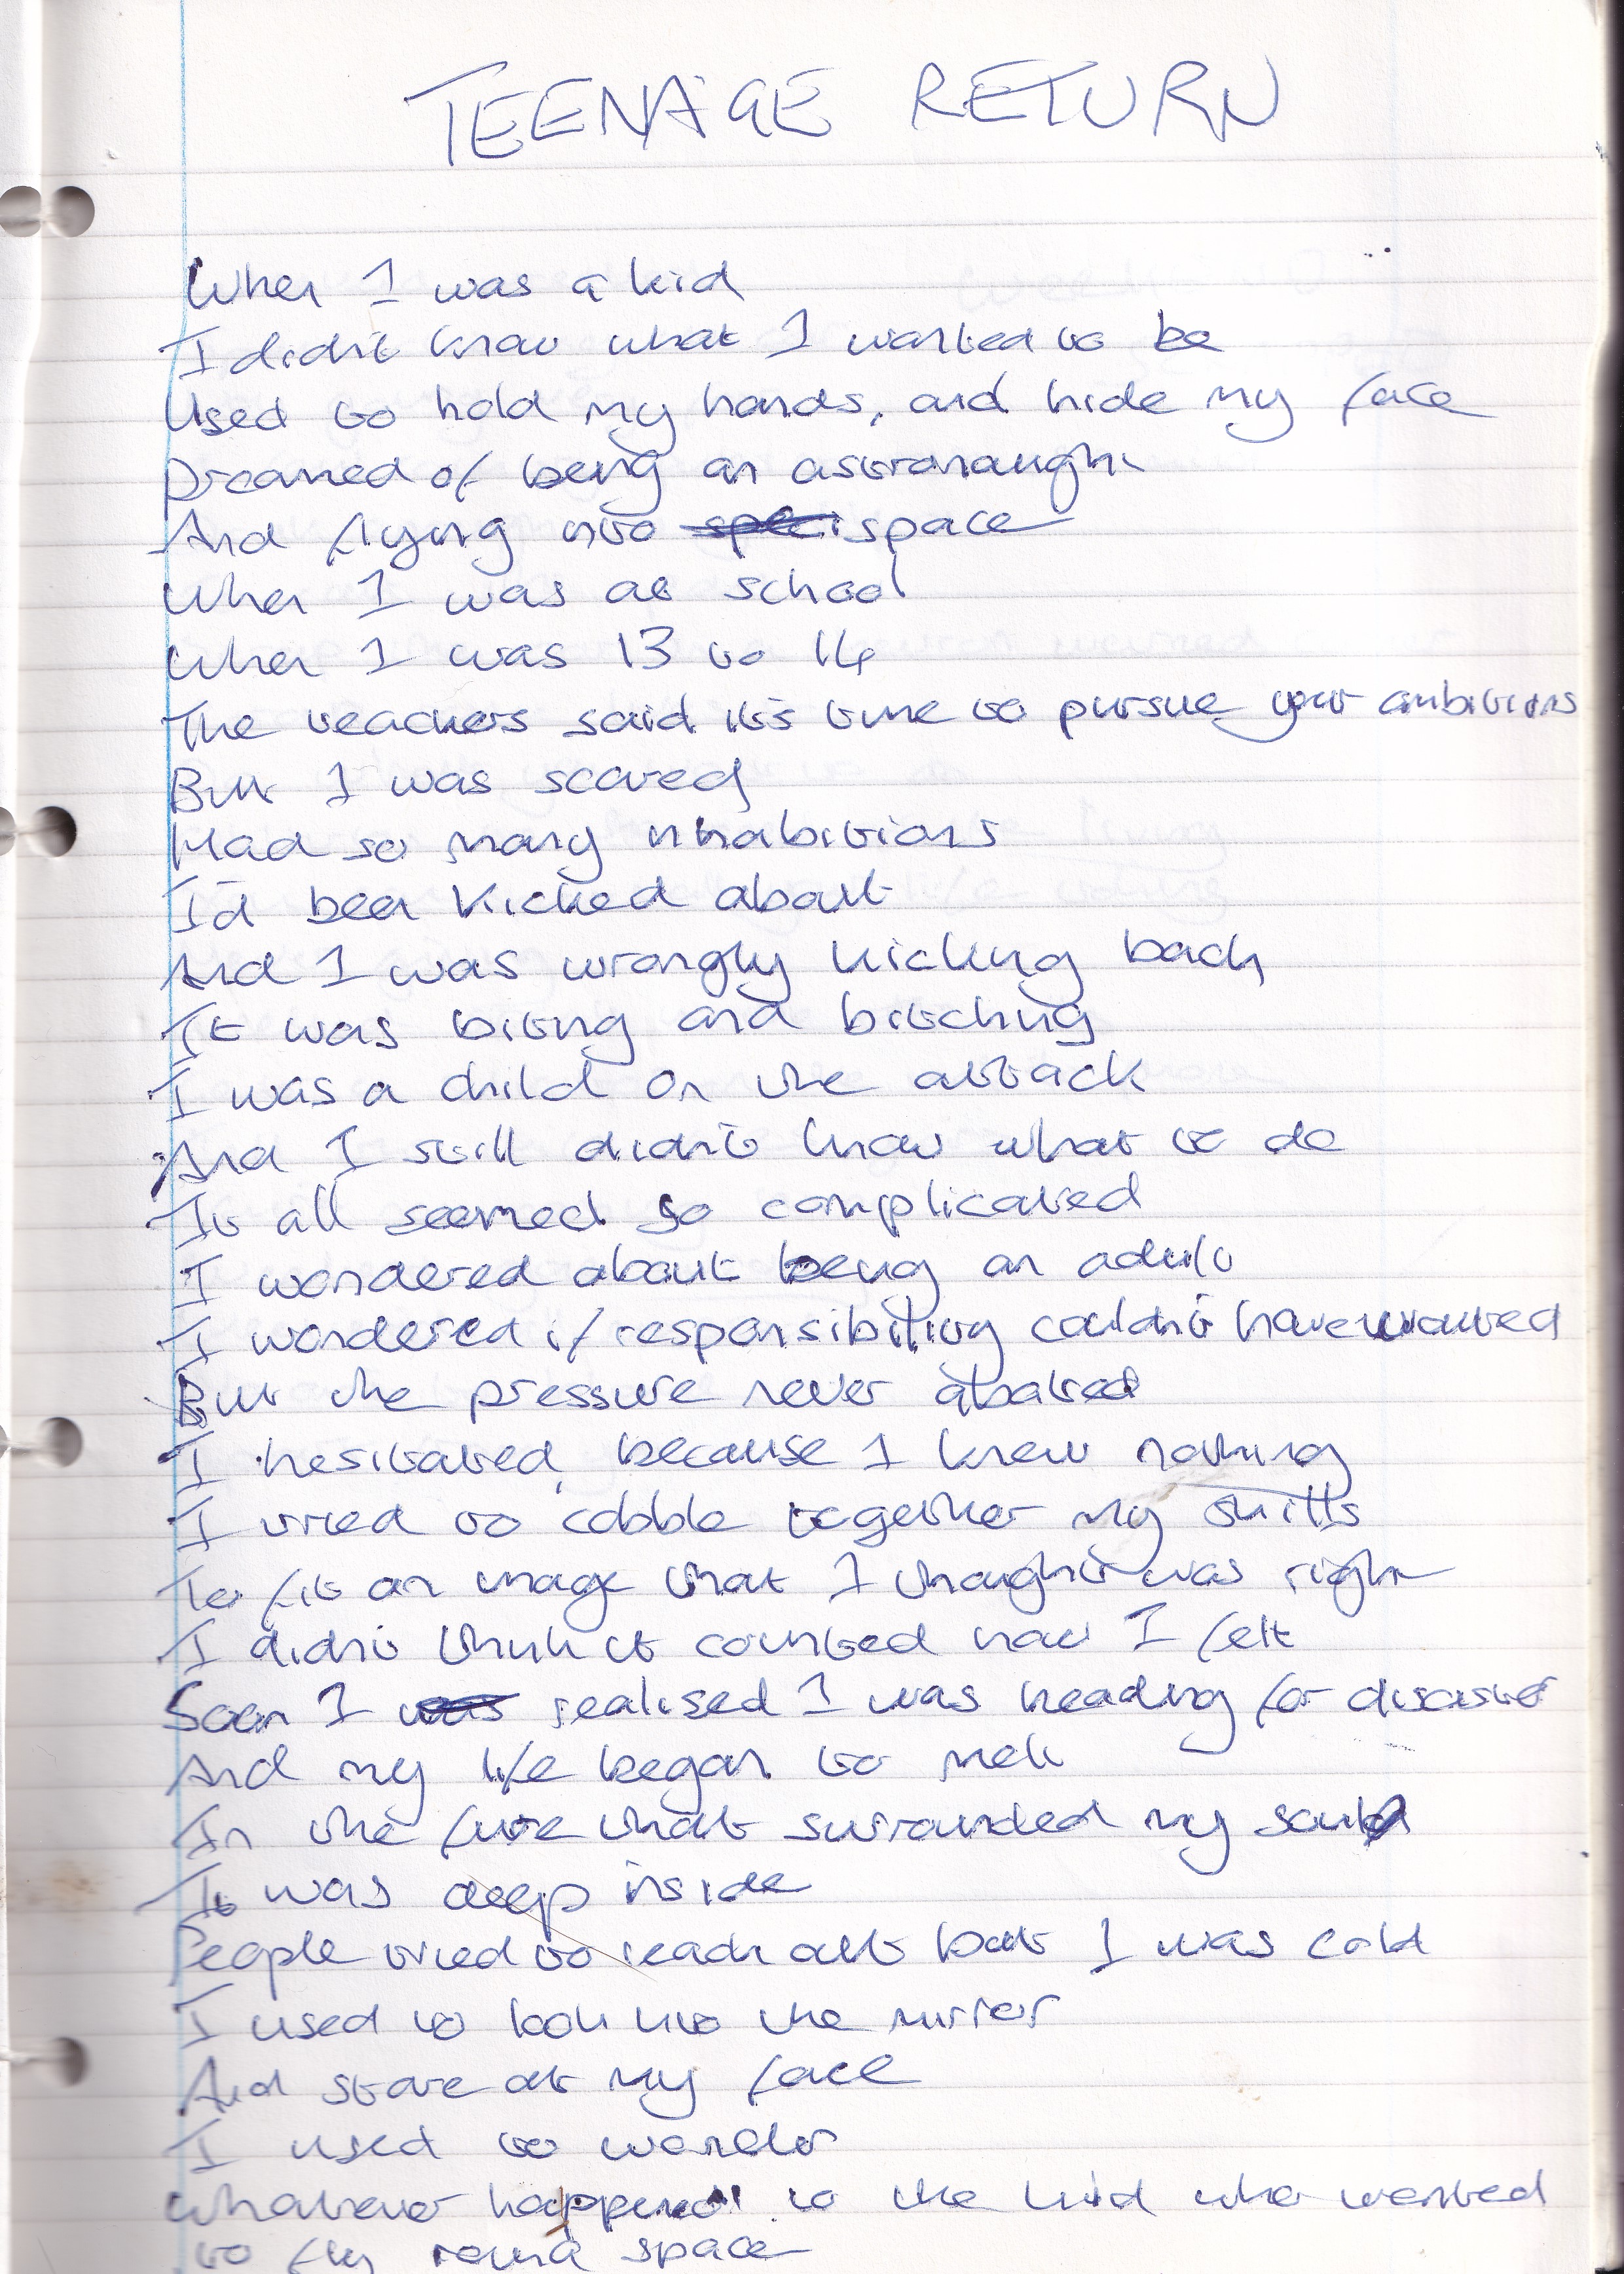 TEENAGE RETURN
When I was a kid
I didn't know what I wanted to be
Used to hold my hands, and hide my face
Dreamed of being an astronaught
And flying into space
When I was at school
When I was 13 to 14
The teachers said it's time to pursue your ambitions
But I was scared
Had so many inhabitions
I'd been kicked about
And I was wrongly kicking back
It was biting and bitching
I was a child on the attack
And I still didn't know what to do
It all seemed so complicated
I wondered about being an adult
I wondered if responsibility couldn't have waited
But the pressure never abated
I hesitated, because I knew nothing
I tried to cobble together my skills
To fit an image that I thought was right
I didn't think it counted how I felt
Soon I was realised I was heading for disaster
And my life began to melt
In the fire that surrounded my soul
It was deep inside
People tried to reach out but I was cold
I used to look into the mirror
And stare at my face
I used to wonder
Whatever happened to the kid who wanted
to fly round space